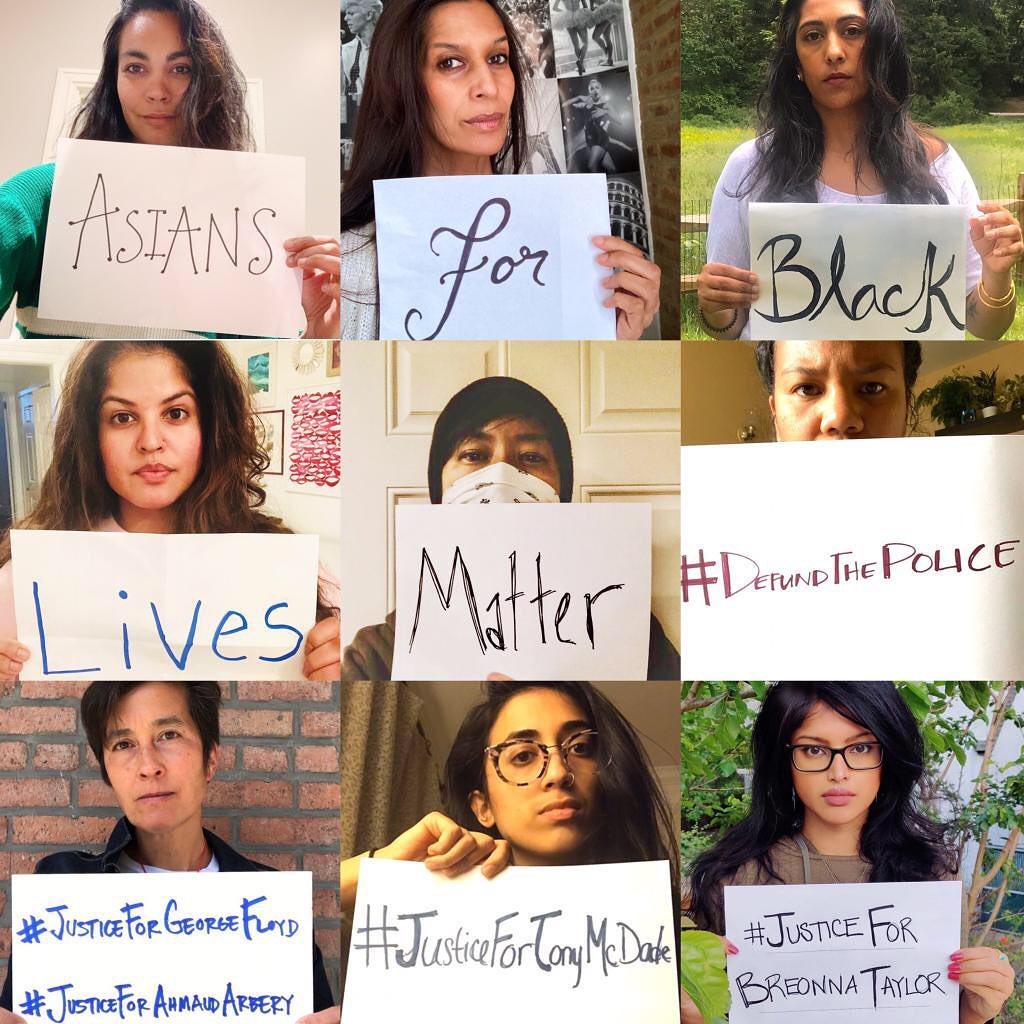 ASIANS
For
Black
Lives
Matter
#DEFUNDTHEPOLICE
#JUSTICEFORGEORGEFLOYD
#JUSTICEFORAHMAUDARBERY
#JusticeForTonyMcDade
#JUSTICE FOR
BREONNA TAYLOR